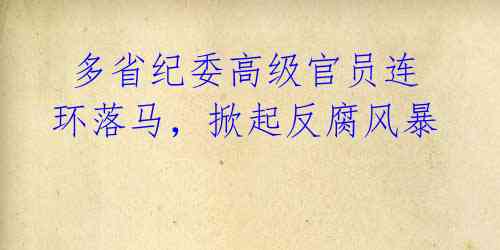 多省纪委高级官员连
环落马，掀起反腐风暴